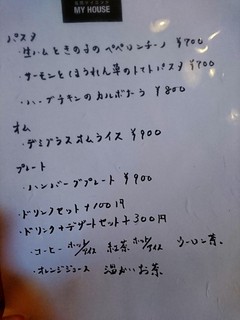 MY HOUSE
パスタ
・生ハムときのこのペペロンチーノ ¥700
・サーモンとほうれん草のトマトパスタ ¥700
・ハーブチキンのカルボナーラ ¥800
オム
・デミグラスオムライス ¥900
プレート
・ハンバーグプレート ¥900
・ドリンクセット+100円
・ドリンク+デザートセット+300円
・コーヒー ホット/アイス 紅茶 ホット/アイス ウーロン茶
・オレンジジュース 温かいお茶